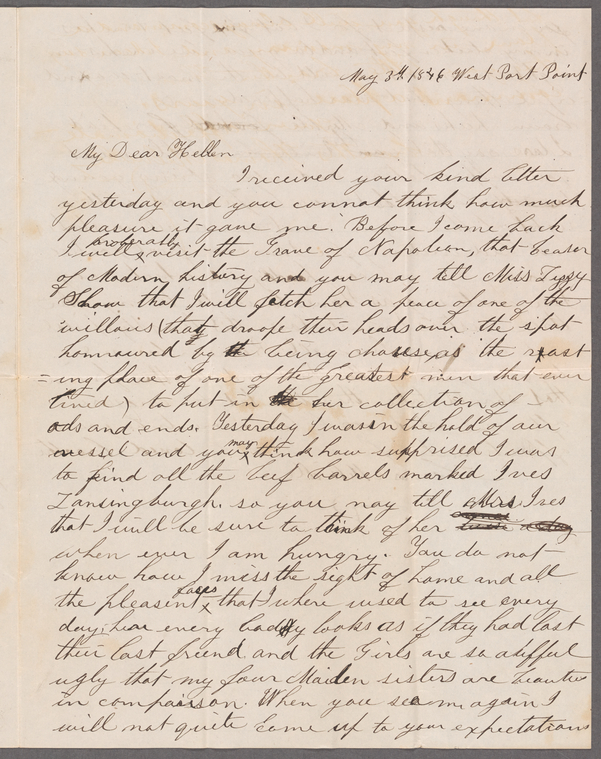 May 3th 1846 West Port Point
My Dear Hellen
I received your kind letter
yesterday and you connot think how much
pleasure it gave me. Before I come back
I will proberally visit the Grave of Napoleon, that
of Modern history, and you may tell Miss Lizzy
Show that I will fetch her a peace of one of the
willows (that droope their heads over the spot
honnoured by being chouse as the rast
=ing place of one of the Greatest men that ever
lived) to put in her collection of
ods and ends. Yesterday I was in the hold of our
vessel and you may think how suprised I was
to find all the beef barrels marked Ives
Lansingburgh. so you may tell Mrs Ives
that I will be sure to think of her
when ever I am hungry. You do not
know how I miss the sight of home and all
the pleasint faces that I where used to see every
day; hear every body looks as if they had lost
their last friend. and the Girls are so awfful
ugly that my four Maiden sisters are beauties
in compairson. When you see me again I
will not quite come up to your expectations